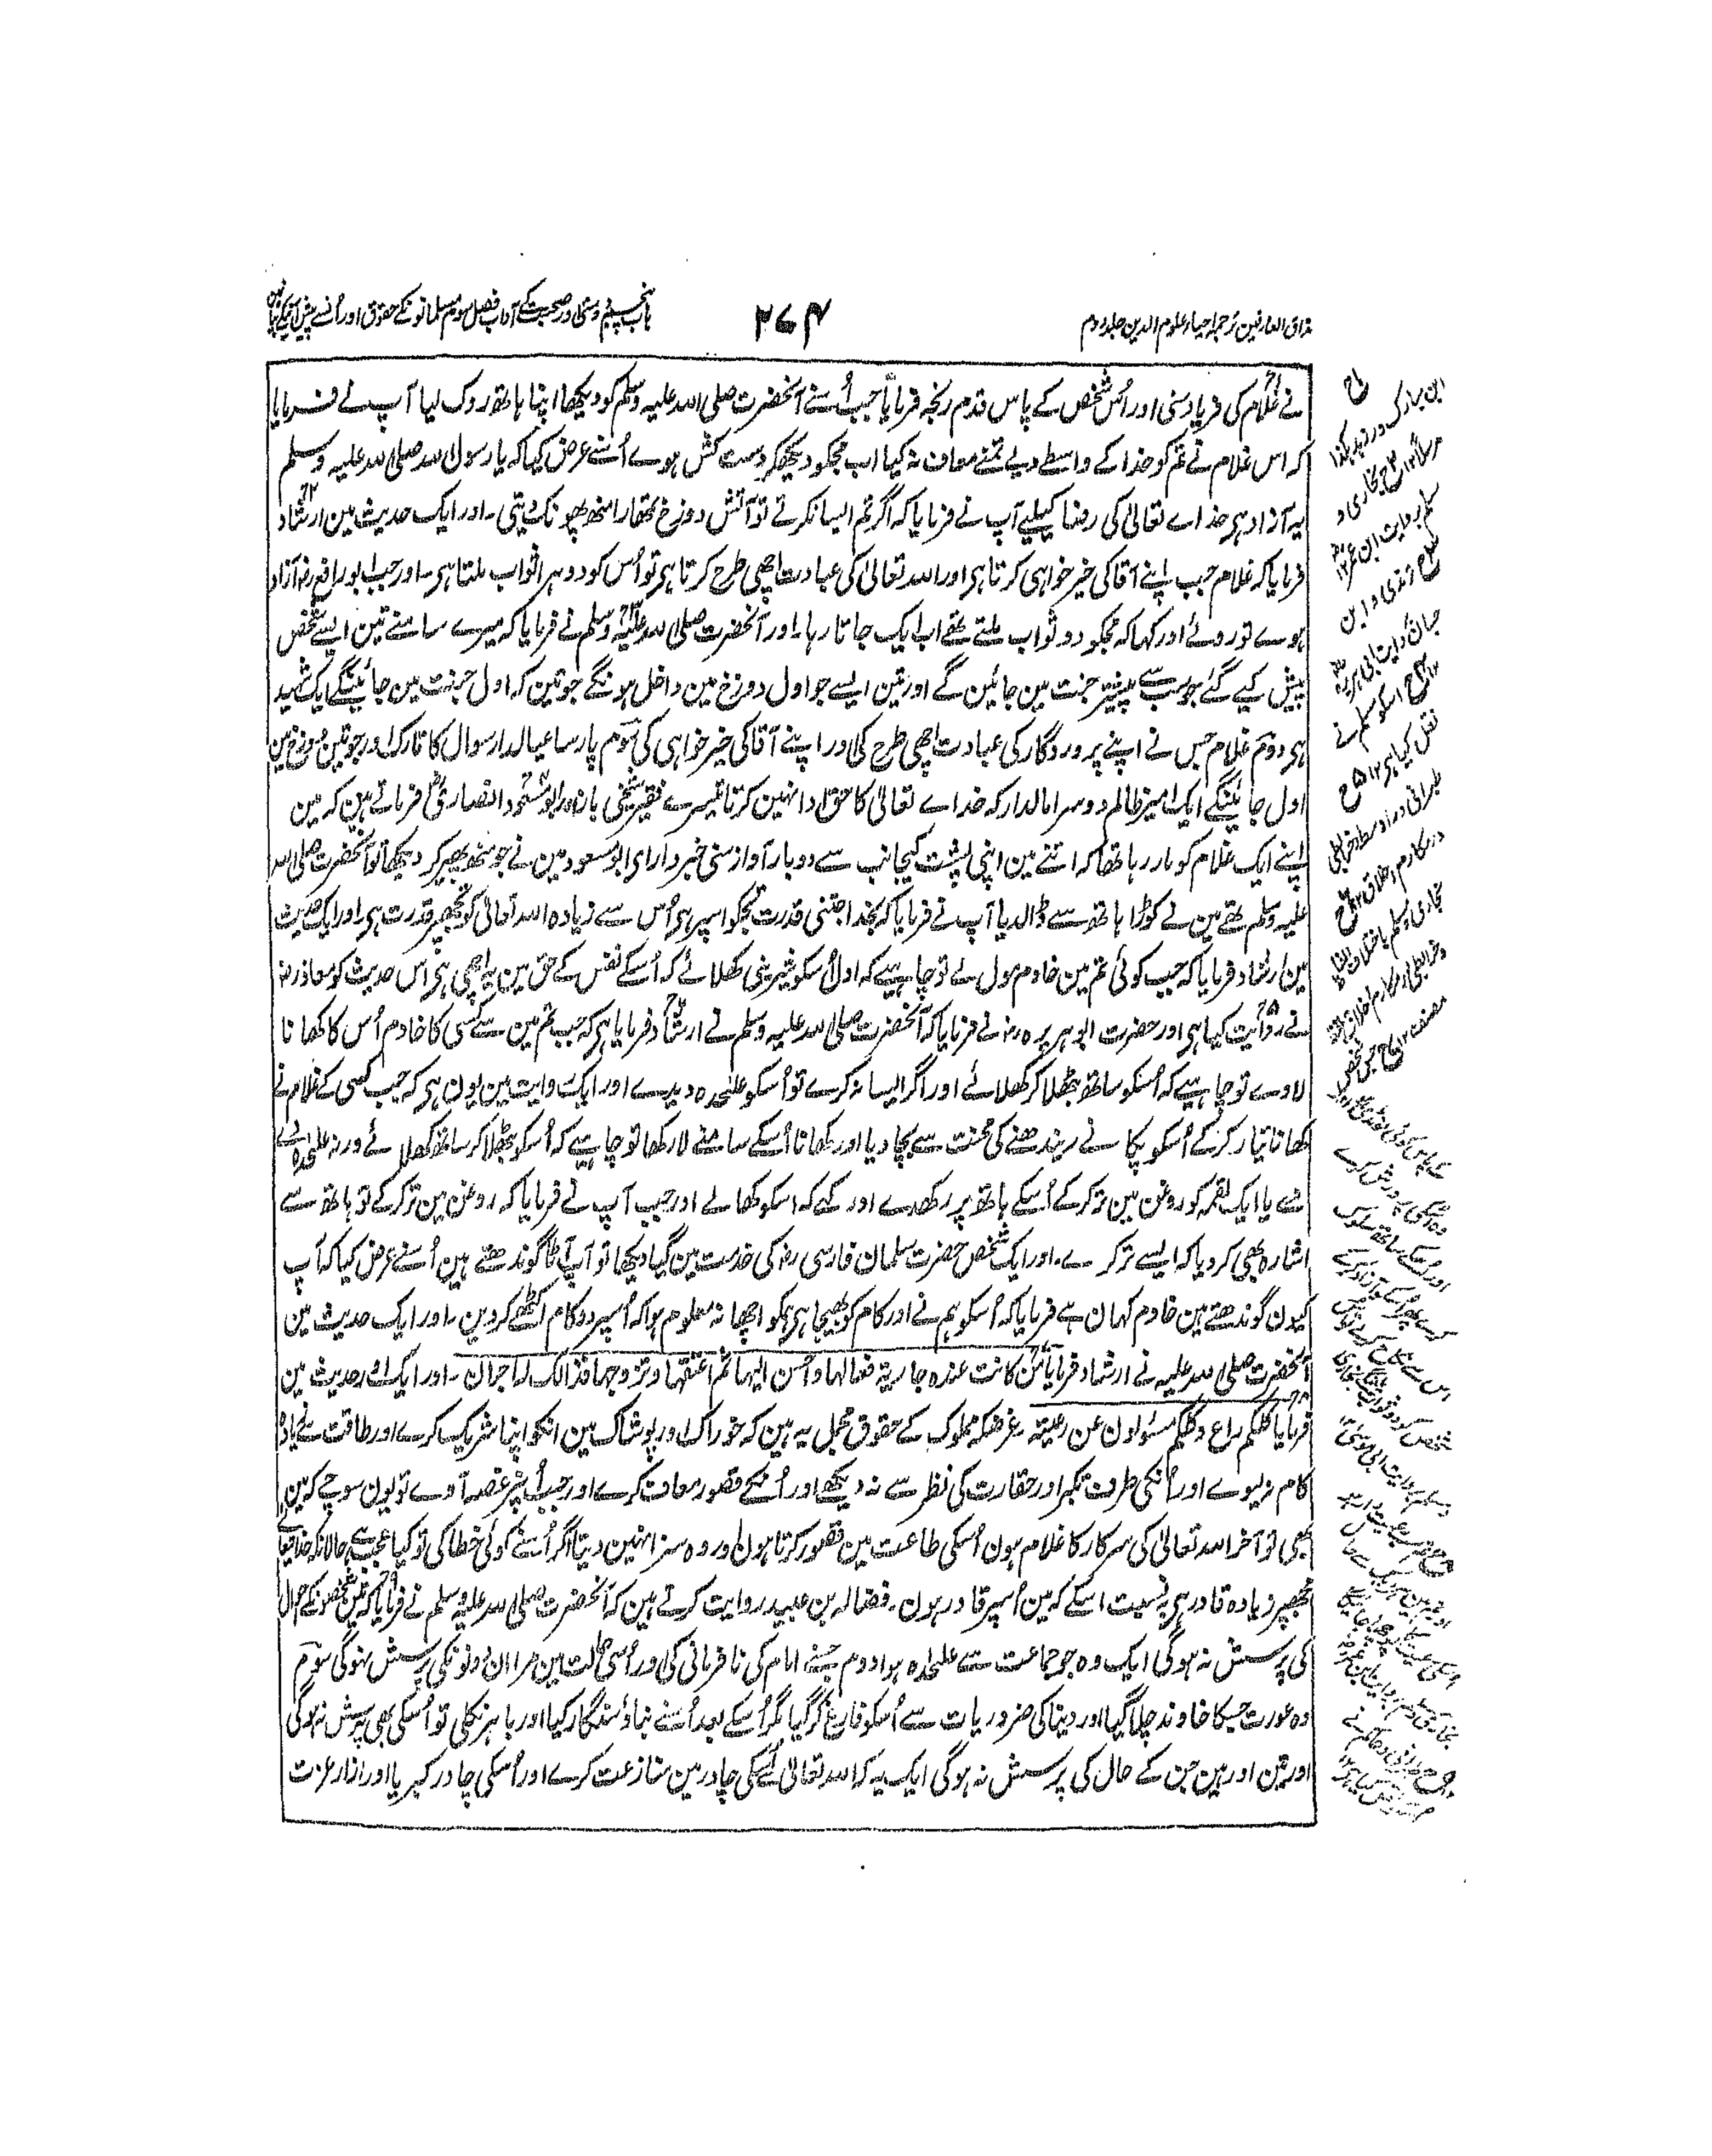 مذاق العارفین ترجمہ احیاء علوم الدین جلد دوم
۲۷۴
باب پنجم دوستی اور صحبت کے آداب فصل سوم مسلمانونکے حقوق اور اُنسے پیش آنیکے
نے غلام کی فریاد سنی اور اُس شخص کے پاس قدم رنجہ فرمایا جب اُسنے آنحضرت صلی اللہ علیہ وسلم کو دیکھا اپنا ہاتھ روک لیا آپ نے فرمایا
کہ اس غلام نے تم کو خدا کے واسطے دیے تمنے معاف نہ کیا اب مجکو دیکھکر دست کش ہوے اُسنے عرض کیا کہ یا رسول اللہ صلی اللہ علیہ وسلم
یہ آزاد ہی خداے تعالیٰ کی رضا کیلیے آپ نے فرمایا کہ اگر تم ایسا نکرتے تو آتش دوزخ تمھارا منھ پھونک دیتی۔ اور ایک حدیث مین ارشاد
فرمایا کہ غلام جب اپنے آقا کی خیر خواہی کرتا ہی اور اللہ تعالیٰ کی عبادت اچھی طرح کرتا ہی تو اُس کو دوہرا ثواب ملتا ہی۔ اور جب ابو رافع رضہ آزاد
ہوے تو روئے اور کہا کہ مجکو دو ثواب ملتے تھے اب ایک جاتا رہا۔ اور آنحضرت صلی اللہ علیہ وسلم نے فرمایا کہ میرے سامنے تین ایسے شخص
پیش کیے گئے جو سب سے پیشتر جنت مین جائین گے اور تین ایسے جو اول دوزخ مین داخل ہونگے جو تین کہ اول جنت مین جائینگے ایک شہید
ہی دوم غلام جس نے اپنے پروردگار کی عبادت اچھی طرح کی اور اپنے آقا کی خیر خواہی کی سوم پارسا عیالدار سوال کا تارک اور جو تین دوزخ مین
اول جائینگے ایک امیر ظالم دوسرا مالدار کہ خداے تعالیٰ کا حق ادا نہین کرتا تیسرے فقیر شیخی باز۔ اور ابو مسعود انصاری رضہ فرماتے ہین کہ مین
اپنے ایک غلام کو مار رہا تھا کہ اتنے مین اپنی پشت کیجانب سے دو بار آواز سنی خبردار ای ابو مسعود مین نے جو منھ پھیر کر دیکھا تو آنحضرت صلی اللہ
علیہ وسلم تھے مین نے کوڑا ہاتھ سے ڈالدیا آپ نے فرمایا کہ بخدا جتنی قدرت تجکو اسپر ہی اُس سے زیادہ اللہ تعالیٰ کو تجھپر قدرت ہی اور ایک حدیث
مین ارشاد فرمایا کہ جب کوئی تم مین خادم مول لے تو چاہیے کہ اول اُسکو شیرینی کھلائے کہ اُسکے نفس کے حق مین یہ اچھی ہی اس حدیث کو معاذ رضہ
نے روایت کیا ہی اور حضرت ابو ہریرہ رضہ نے فرمایا کہ آنحضرت صلی اللہ علیہ وسلم نے ارشاد فرمایا ہی کہ جب تم مین سے کسی کا خادم اُس کا کھانا
لاوے تو چاہیے کہ اُسکو ساتھ بٹھلا کر کھلائے اور اگر ایسا نہ کرے تو اُسکو علٰحدہ دیدے اور ایک روایت مین یون ہی کہ جب کسی کے غلام نے
کھانا تیار کر کے اُسکو پکانے ریندھنے کی محنت سے بچا دیا اور کھانا اُسکے سامنے لا رکھا تو چاہیے کہ اُسکو بٹھلا کر ساتھ کھلائے ورنہ علٰحدہ دے
دے یا ایک لقمہ کو روغن مین تر کر کے اُسکے ہاتھ پر رکھدے اور کہے کہ اسکو کھا لے اور جب آپ نے فرمایا کہ روغن مین تر کر کے تو ہاتھ سے
اشارہ بھی کر دیا کہ ایسے تر کرے۔ اور ایک شخص حضرت سلمان فارسی رضہ کی خدمت مین گیا دیکھا تو آپ آٹا گوندھتے ہین اُسنے عرض کیا کہ آپ
کیون گوندھتے ہین خادم کہان ہے فرمایا کہ اُسکو ہم نے اور کام کو بھیجا ہی ہمکو اچھا نہ معلوم ہوا کہ اُسپر دو کام اکٹھے کر دین۔ اور ایک حدیث مین
آنحضرت صلی اللہ علیہ نے ارشاد فرمایا من کانت عندہ جاریۃ فعالہا واحسن الیہا ثم اعتقہا وتزوجہا فذالک لہ اجران۔ اور ایک اور حدیث مین
فرمایا کلکم راع وکلکم مسئولون عن رعیتہ۔ غرضکہ مملوک کے حقوق مجمل یہ ہین کہ خوراک اور پوشاک مین انکو اپنا شریک کرے اور طاقت سے زیادہ
کام نہ لیوے اور اُنکی طرف تکبر اور حقارت کی نظر سے نہ دیکھے اور اُنکے قصور معاف کرے اور جب اُنپر غصہ آوے تو یون سوچے کہ مین
بھی تو آخر اللہ تعالیٰ کی سرکار کا غلام ہون اُسکی طاعت مین قصور کرتا ہون اور وہ سزا نہین دیتا اگر اُسنے کوئی خطا کی تو کیا عجب ہے حالانکہ خدا تعالیٰ
مجھپر زیادہ قادر ہی بہ نسبت اسکے کہ مین اُسپر قادر ہون۔ فضالہ بن عبید روایت کرتے ہین کہ آنحضرت صلی اللہ علیہ وسلم نے فرمایا کہ تین شخصونکے حال
کی پرسش نہ ہوگی ایک وہ جو جماعت سے علٰحدہ ہوا دوم جسنے امام کی نافرمانی کی اور اُسی حالت مین مرا ان دونونکی پرسش نہوگی سوم
وہ عورت جسکا خاوند چلا گیا اور دنیا کی ضروریات سے اُسکو فارغ کر گیا مگر اُسکے بعد اُسنے بناؤ سنگار کیا اور باہر نکلی تو اُسکی بھی پرسش نہ ہوگی
اور تین اور ہین جن کے حال کی پرسش نہ ہوگی ایک یہ کہ اللہ تعالیٰ سے اُسکی چادر مین منازعت کرے اور اُسکی چادر کبریا اور ازار عزت
ابن مبارک در زہد
بخاری و
مسلم بروایت ابن عمر ۱۲
ترمذی و ابن
حبان بروایت ابی ہریرہ
اسکو مسلم نے
نقل کیا ہی ۱۲
طبرانی در اوسط و خرائطی
در مکارم اخلاق ۱۲
بخاری و مسلم باختلاف
جس شخص
کے پاس کوئی لونڈی
اور اُسکے ساتھ سلوک
کرے پھر اُسکو آزاد کرکے
اس سے نکاح کرے تو اُس
شخص کو دو ثواب